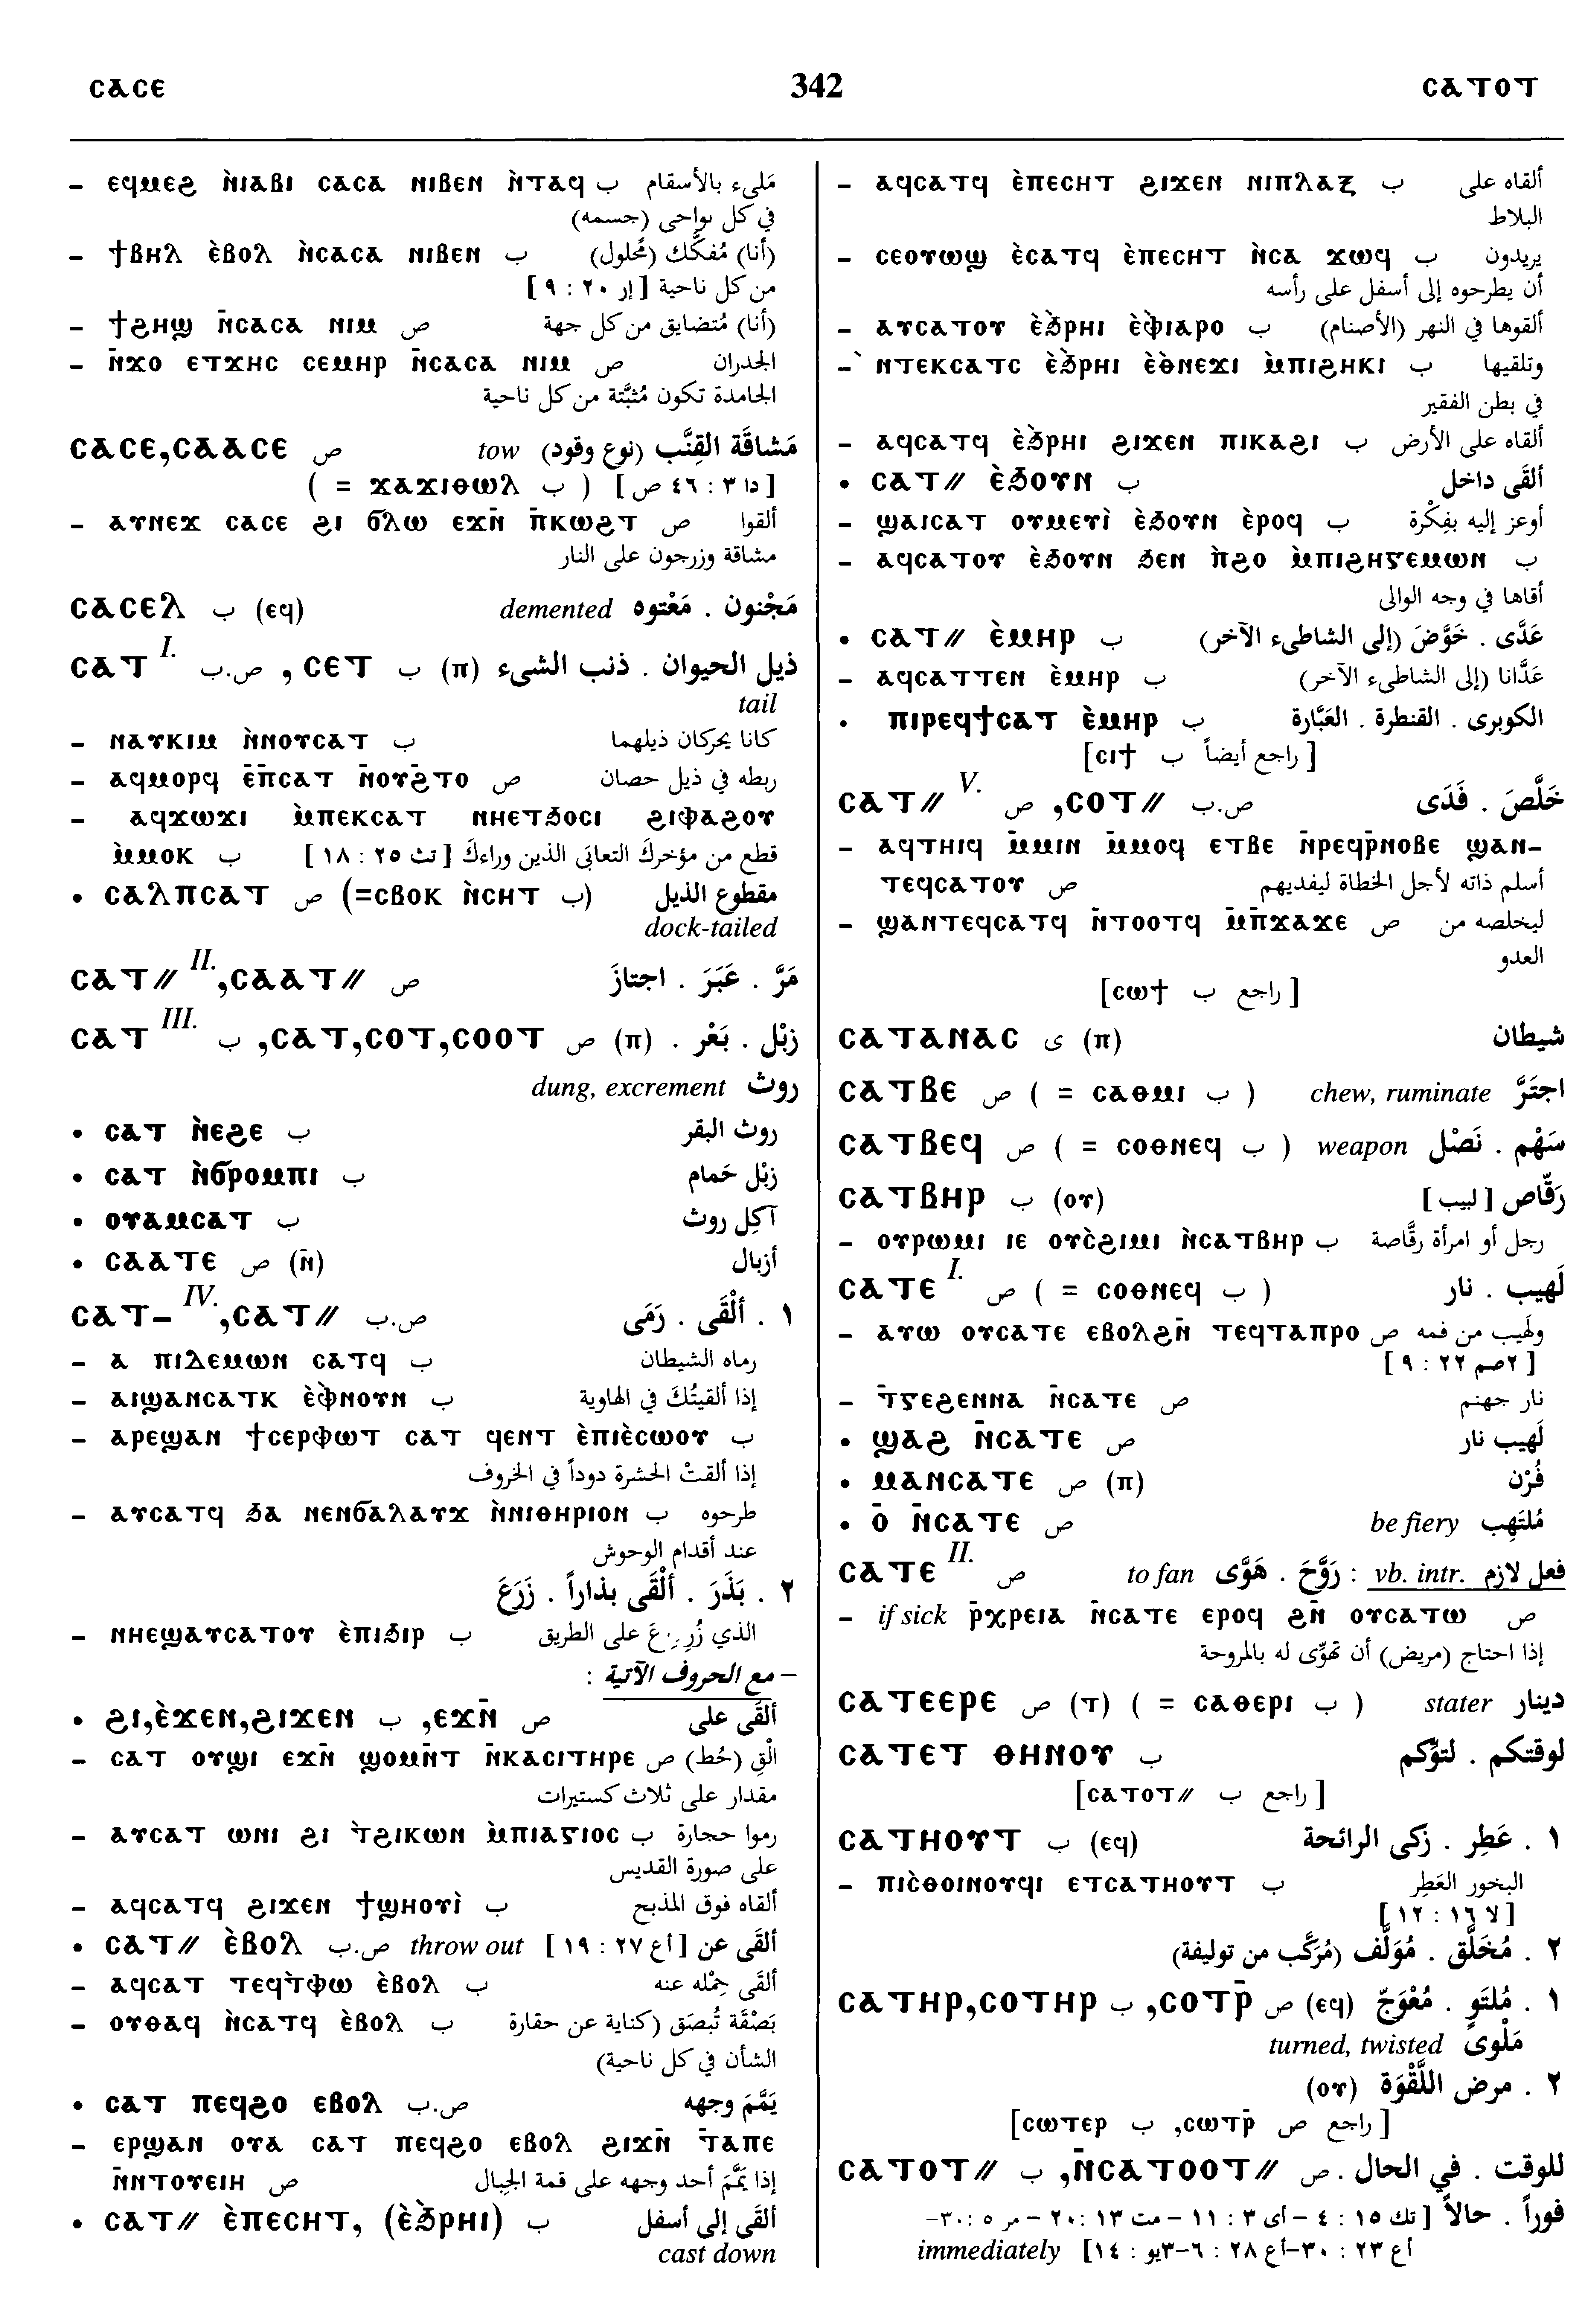 ⲥⲁⲥⲉ 342 ⲥⲁⲧⲟⲧ
– ⲉϥⲙⲉϩ ⲛ̀ⲓⲁⲃⲓ ⲥⲁⲥⲁ ⲛⲓⲃⲉⲛ ⲛ̀ⲧⲁϥ ب مَليء بالأسقام
في كل نواحى (جسمه)
– ϯⲃⲏⲗ ⲉ̀ⲃⲟⲗ ⲛ̀ⲥⲁⲥⲁ ⲛⲓⲃⲉⲛ ب (أنا) مُفكَّك (مَحلول)
من كل ناحية [إر ٢٠ : ٩]
– ϯϩⲏϣ ⲛ̄ⲥⲁⲥⲁ ⲛⲓⲙ ص (أنا) مُتضايق من كل جهة
– ⲛ̄ϫⲟ ⲉⲧϫⲏⲥ ⲥⲉⲙⲏⲣ ⲛ̄ⲥⲁⲥⲁ ⲛⲓⲙ ص الجدران
الجامدة تكون مُثبَّتة من كل ناحية
ⲥⲁⲥⲉ,ⲥⲁⲁⲥⲉ ص tow مَشاقَة القِنَّب (نوع وقود)
[دا ٣ : ٤٦ ص] ( ب ϫⲁϫⲓⲑⲱⲗ = )
– ⲁⲩⲛⲉϫ ⲥⲁⲥⲉ ϩⲓ ϭⲗⲱ ⲉϫⲛ̄ ⲡ̄ⲕⲱϩⲧ ص ألقوا
مشاقة وزرجون على النار
ⲥⲁⲥⲉⲗ ب (ⲉϥ) demented مَجْنون . مَعْتوه
ⲥⲁⲧ I. ص.ب , ⲥⲉⲧ ب (ⲡ) ذيل الحيوان . ذنب الشيء
tail
– ⲛⲁⲩⲕⲓⲙ ⲛ̀ⲛⲟⲩⲥⲁⲧ ب كانا يحركان ذيلهما
– ⲁϥⲙⲟⲣϥ ⲉ̄ⲡ̄ⲥⲁⲧ ⲛ̄ⲟⲩϩ̄ⲧⲟ ص ربطه في ذيل حصان
– ⲁϥϫⲱϫⲓ ⲙ̀ⲡⲉⲕⲥⲁⲧ ⲛⲏⲉⲧϧⲟⲥⲓ ϩⲓⲫⲁϩⲟⲩ
ⲙ̀ⲙⲟⲕ ب قطع من مؤخرك التعابَى الذين وراءك [تث ٢٥ : ١٨]
• ⲥⲁⲗⲡⲥⲁⲧ ص (=ⲥⲃⲟⲕ ⲛ̀ⲥⲏⲧ ب) مقطوع الذيل
dock-tailed
ⲥⲁⲧ// II.,ⲥⲁⲁⲧ// ص مَرَّ . عَبَرَ . اجتازَ
ⲥⲁⲧ III. ب ,ⲥⲁⲧ,ⲥⲟⲧ,ⲥⲟⲟⲧ ص (ⲡ) زبْل . بَعْر .
dung, excrement روث
• ⲥⲁⲧ ⲛ̀ⲉϩⲉ ب روث البقر
• ⲥⲁⲧ ⲛ̀ϭⲣⲟⲙⲡⲓ ب زبْل حَمام
• ⲟⲩⲁⲙⲥⲁⲧ ب آكِل روث
• ⲥⲁⲁⲧⲉ ص (ⲛ̄) أزبال
ⲥⲁⲧ– IV.,ⲥⲁⲧ// ص.ب ١ . ألْقَى . رَمَى
– ⲁ ⲡⲓⲇⲉⲙⲱⲛ ⲥⲁⲧϥ ب رماه الشيطان
– ⲁⲓϣⲁⲛⲥⲁⲧⲕ ⲉ̀ⲫⲛⲟⲩⲛ ب إذا ألقيتُكَ في الهاوية
– ⲁⲣⲉϣⲁⲛ ϯⲥⲉⲣⲫⲱⲧ ⲥⲁⲧ ϥⲉⲛⲧ ⲉ̀ⲡⲓⲉ̀ⲥⲱⲟⲩ ب
إذا ألقتْ الحشرة دوداً في الخروف
– ⲁⲩⲥⲁⲧϥ ϧⲁ ⲛⲉⲛϭⲁⲗⲁⲩϫ ⲛ̀ⲛⲓⲑⲏⲣⲓⲟⲛ ب طرحوه
عند أقدام الوحوش
٢ . بَذَرَ . ألْقَى بذاراً . زَرَعَ
– ⲛⲏⲉϣⲁⲩⲥⲁⲧⲟⲩ ⲉ̀ⲡⲓϧⲓⲣ ب الذي زُرِعَ على الطريق
– مع الحروف الآتية :
• ϩⲓ,ⲉ̀ϫⲉⲛ,ϩⲓϫⲉⲛ ب ,ⲉϫⲛ̄ ص ألقَى على
– ⲥⲁⲧ ⲟⲩϣⲓ ⲉϫⲛ̄ ϣⲟⲙⲛ̄ⲧ ⲛ̄ⲕⲁⲥⲓⲧⲏⲣⲉ ص ألْقِ (حُط)
مقدار على ثلاث كستيرات
– ⲁⲩⲥⲁⲧ ⲱⲛⲓ ϩⲓ ⲧ̀ϩⲓⲕⲱⲛ ⲙ̀ⲡⲓⲁⲅⲓⲟⲥ ب رموا حجارة
على صورة القديس
– ⲁϥⲥⲁⲧϥ ϩⲓϫⲉⲛ ϯϣⲏⲟⲩⲓ̀ ب ألقاه فوق المذبح
• ⲥⲁⲧ// ⲉ̀ⲃⲟⲗ ص.ب throw out [أع ٢٧ : ١٩] ألقَى عن
– ⲁϥⲥⲁⲧ ⲧⲉϥⲧ̀ⲫⲱ ⲉ̀ⲃⲟⲗ ب ألقَى حِمْله عنه
– ⲟⲩⲑⲁϥ ⲛ̀ⲥⲁⲧϥ ⲉ̀ⲃⲟⲗ ب بَصْقَة تُبصَق (كناية عن حقارة
الشأن في كل ناحية)
• ⲥⲁⲧ ⲡⲉϥϩⲟ ⲉⲃⲟⲗ ص.ب يَمَّمَ وجهه
– ⲉⲣϣⲁⲛ ⲟⲩⲁ ⲥⲁⲧ ⲡⲉϥϩⲟ ⲉⲃⲟⲗ ϩⲓϫⲛ̄ ⲧ̄ⲁⲡⲉ
ⲛ̄ⲛⲧⲟⲩⲉⲓⲏ ص إذا يَمَّمَ أحد وجهه على قمة الجبال
• ⲥⲁⲧ// ⲉ̀ⲡⲉⲥⲏⲧ, (ⲉ̀ϧⲣⲏⲓ) ب ألقَى إلى أسفل
cast down
– ⲁϥⲥⲁⲧϥ ⲉ̀ⲡⲉⲥⲏⲧ ϩⲓϫⲉⲛ ⲛⲓⲡⲗⲁⲝ ب ألقاه على
البلاط
– ⲥⲉⲟⲩⲱϣ ⲉ̀ⲥⲁⲧϥ ⲉ̀ⲡⲉⲥⲏⲧ ⲛ̀ⲥⲁ ϫⲱϥ ب يريدون
أن يطرحوه إلى أسفل على رأسه
– ⲁⲩⲥⲁⲧⲟⲩ ⲉ̀ϧⲣⲏⲓ ⲉ̀ⲫⲓⲁⲣⲟ ب ألقوها في النهر (الأصنام)
– ̀ⲛⲧⲉⲕⲥⲁⲧⲥ ⲉ̀ϧⲣⲏⲓ ⲉ̀ⲑⲛⲉϫⲓ ⲙ̀ⲡⲓϩⲏⲕⲓ ب وتلقيها
في بطن الفقير
– ⲁϥⲥⲁⲧϥ ⲉ̀ϧⲣⲏⲓ ϩⲓϫⲉⲛ ⲡⲓⲕⲁϩⲓ ب ألقاه على الأرض
• ⲥⲁⲧ// ⲉ̀ϧⲟⲩⲛ ب ألقَى داخل
– ϣⲁⲓⲥⲁⲧ ⲟⲩⲙⲉⲩⲓ̀ ⲉ̀ϧⲟⲩⲛ ⲉ̀ⲣⲟϥ ب أوعز إليه بفِكْرة
– ⲁϥⲥⲁⲧⲟⲩ ⲉ̀ϧⲟⲩⲛ ϧⲉⲛ ⲡ̀ϩⲟ ⲙ̀ⲡⲓϩⲏⲅⲉⲙⲱⲛ ب
أقاها في وجه الوالى
• ⲥⲁⲧ// ⲉ̀ⲙⲏⲣ ب عَدَّى . خَوَّضَ (إلى الشاطىء الآخر)
– ⲁϥⲥⲁⲧⲧⲉⲛ ⲉ̀ⲙⲏⲣ ب عَدَّانا (إلى الشاطىء الآخر)
• ⲡⲓⲣⲉϥϯⲥⲁⲧ ⲉ̀ⲙⲏⲣ ب الكوبرى . القنطرة . العَبَّارة
[راجع أيضاً ب ⲥⲓϯ]
ⲥⲁⲧ// V. ص ,ⲥⲟⲧ// ص.ب خَلَّصَ . فَدَى
– ⲁϥⲧⲏⲓϥ ⲙ̄ⲙⲓⲛ ⲙ̄ⲙⲟϥ ⲉⲧⲃⲉ ⲛ̄ⲣⲉϥⲣ̄ⲛⲟⲃⲉ ϣⲁⲛ–
ⲧⲉϥⲥⲁⲧⲟⲩ ص أسلم ذاته لأجل الخطاة ليفديهم
– ϣⲁⲛⲧⲉϥⲥⲁⲧϥ ⲛ̄ⲧⲟⲟⲧϥ ⲙ̄ⲡ̄ϫⲁϫⲉ ص ليخلصه من
العدو
[راجع ب ⲥⲱϯ]
ⲥⲁⲧⲁⲛⲁⲥ ى (ⲡ) شيطان
ⲥⲁⲧⲃⲉ ص ( = ⲥⲁⲑⲙⲓ ب ) chew, ruminate اجتَرَّ
ⲥⲁⲧⲃⲉϥ ص ( = ⲥⲟⲑⲛⲉϥ ب ) weapon سَهْم . نَصْل
ⲥⲁⲧⲃⲏⲣ ب (ⲟⲩ) رَقّاص [لبيب]
– ⲟⲩⲣⲱⲙⲓ ⲓⲉ ⲟⲩⲥ̀ϩⲓⲙⲓ ⲛ̀ⲥⲁⲧⲃⲏⲣ ب رجل أو امرأة رقَّاصة
ⲥⲁⲧⲉ I. ص ( = ⲥⲟⲑⲛⲉϥ ب ) لَهيب . نار
– ⲁⲩⲱ ⲟⲩⲥⲁⲧⲉ ⲉⲃⲟⲗϩⲛ̄ ⲧⲉϥⲧⲁⲡⲣⲟ ص ولهيب من فمه
[٢صم ٢٢ : ٩]
– ⲧ̄ⲅⲉϩⲉⲛⲛⲁ ⲛ̄ⲥⲁⲧⲉ ص نار جهنم
• ϣⲁϩ ⲛ̄ⲥⲁⲧⲉ ص لَهيب نار
• ⲙⲁⲛⲥⲁⲧⲉ ص (ⲡ) فُرْن
• ⲟ̄ ⲛ̄ⲥⲁⲧⲉ ص be fiery مُلتَهِب
ⲥⲁⲧⲉ II. ص to fan فعل لازم vb. intr. : رَوَّحَ . هَوَّى
– if sick ⲣ̄ⲭⲣⲉⲓⲁ ⲛ̄ⲥⲁⲧⲉ ⲉⲣⲟϥ ϩⲛ̄ ⲟⲩⲥⲁⲧⲱ ص
إذا احتاج (مريض) أن تهوِّى له بالمروحة
ⲥⲁⲧⲉⲉⲣⲉ ص (ⲧ) ( = ⲥⲁⲑⲉⲣⲓ ب ) stater دينار
ⲥⲁⲧⲉⲧ ⲑⲏⲛⲟⲩ ب لوقتكم . لتوِّكم
[راجع ب ⲥⲁⲧⲟⲧ//]
ⲥⲁⲧⲏⲟⲩⲧ ب (ⲉϥ) ١ . عَطِر . زكى الرائحة
– ⲡⲓⲥ̀ⲑⲟⲓⲛⲟⲩϥⲓ ⲉⲧⲥⲁⲧⲏⲟⲩⲧ ب البخور العَطِر
[لا ١٦ : ١٢]
٢ . مُخَلَّق . مُؤلَّف (مُركَّب من توليفة)
ⲥⲁⲧⲏⲣ,ⲥⲟⲧⲏⲣ ب ,ⲥⲟⲧⲣ̄ ص (ⲉϥ) ١ . مُلتَوٍ . مُعْوَجّ
turned, twisted مَلْوىّ
٢ . مرض اللَّقْوَة (ⲟⲩ)
[راجع ص ⲥⲱⲧⲣ̄, ب ⲥⲱⲧⲉⲣ]
ⲥⲁⲧⲟⲧ// ب ,ⲛ̄ⲥⲁⲧⲟⲟⲧ// ص للوقت . في الحال .
فوراً . حالاً [تك ١٥ : ٤ – أى ٣ : ١١ – مت ١٣ : ٢٠ – مر ٥ : ٣٠–
أع ٢٣ : ٣٠–أع ٢٨ : ٦–٣يو : ١٤] immediately